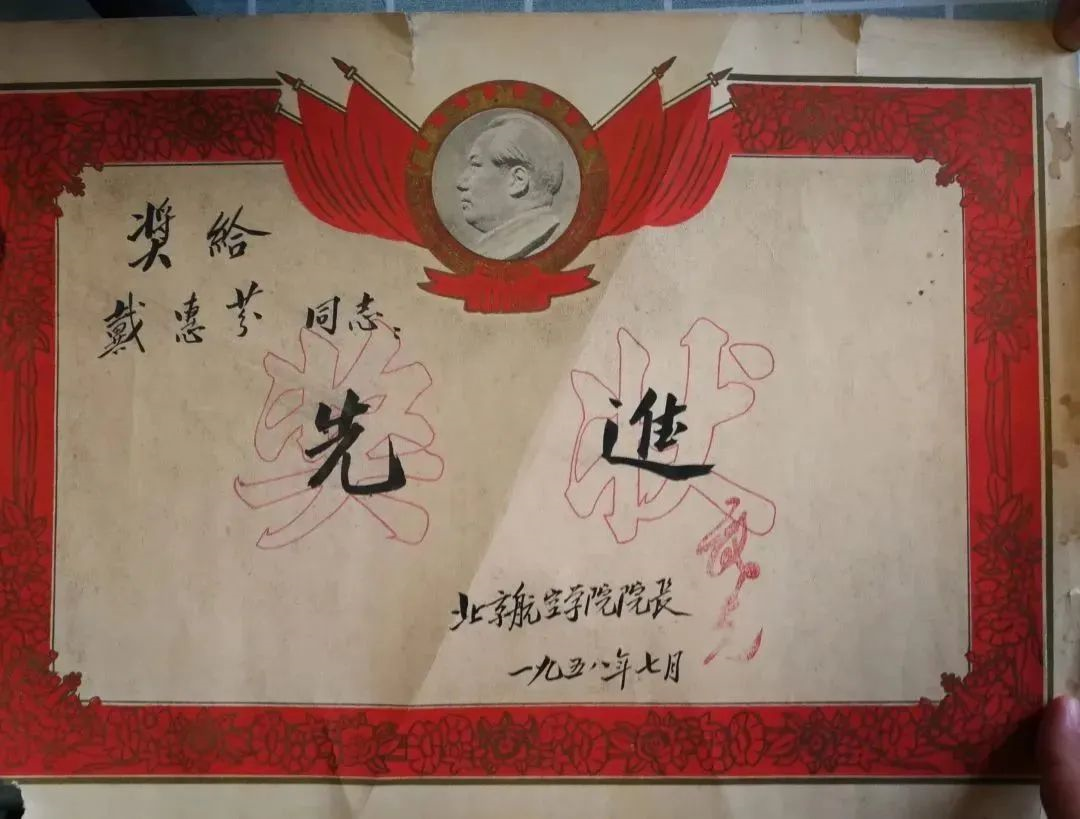 奬給
戴惠芬 同志：
奖状
先進
北京航空学院院長
一九五八年七月